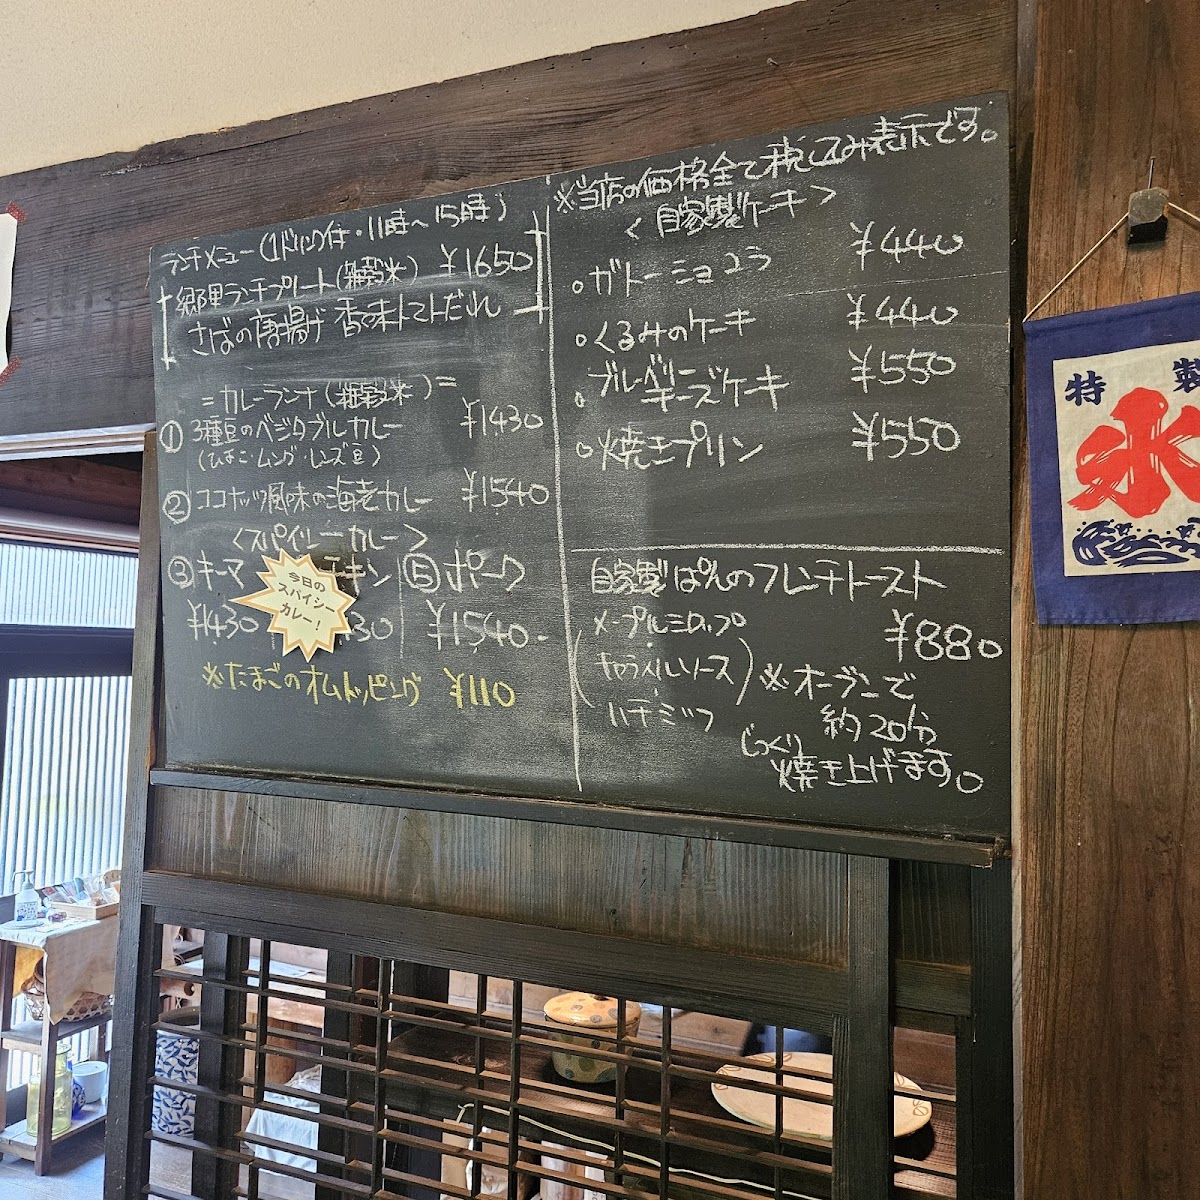 ランチメニュー(1ドリンク付・11時〜15時)
郷里ランチプレート(雑穀米) ¥1650
さばの唐揚げ 香味トマトだれ
=カレーランチ(雑穀米)=
① 3種豆のベジタブルカレー ¥1430
(ひよこ・ムング・レンズ豆)
② ココナッツ風味の海老カレー ¥1540
<スパイシーカレー>
③ キーマ チキン 白ポーク
¥1430 30 ¥1540-
今日の
スパイシー
カレー!
※たまごのオムトッピング ¥110
※当店の価格全て税込み表示です。
<自家製ケーキ>
・ガトーショコラ ¥440
・くるみのケーキ ¥440
・ブルーベリーチーズケーキ ¥550
・焼きプリン ¥550
自家製ぱんのフレンチトースト
メープルシロップ ¥880
キャラメルソース
ハチミツ
※オーブンで
約20分
じっくり
焼き上げます。
特製
氷